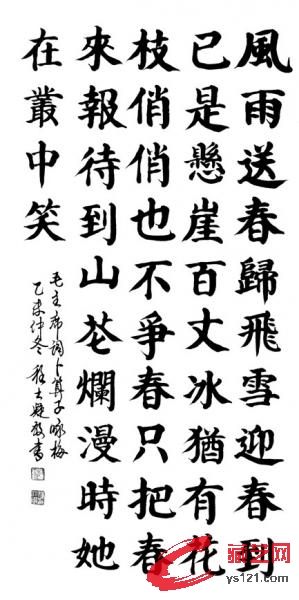 風雨送春歸飛雪迎春到
已是懸崖百丈冰猶有花
枝俏俏也不爭春只把春
來報待到山芲爛漫時她
在叢中笑
毛主席词卜算子咏梅
乙未仲冬
書
ys121.com